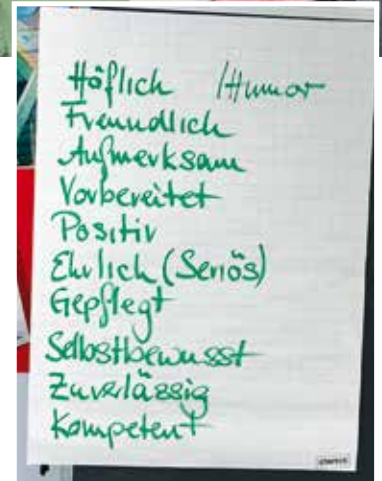 Höflich /Humor
Freundlich
Aufmerksam
Vorbereitet
Positiv
Ehrlich (Seriös)
Gepflegt
Selbstbewusst
Zuverlässig
Kompetent